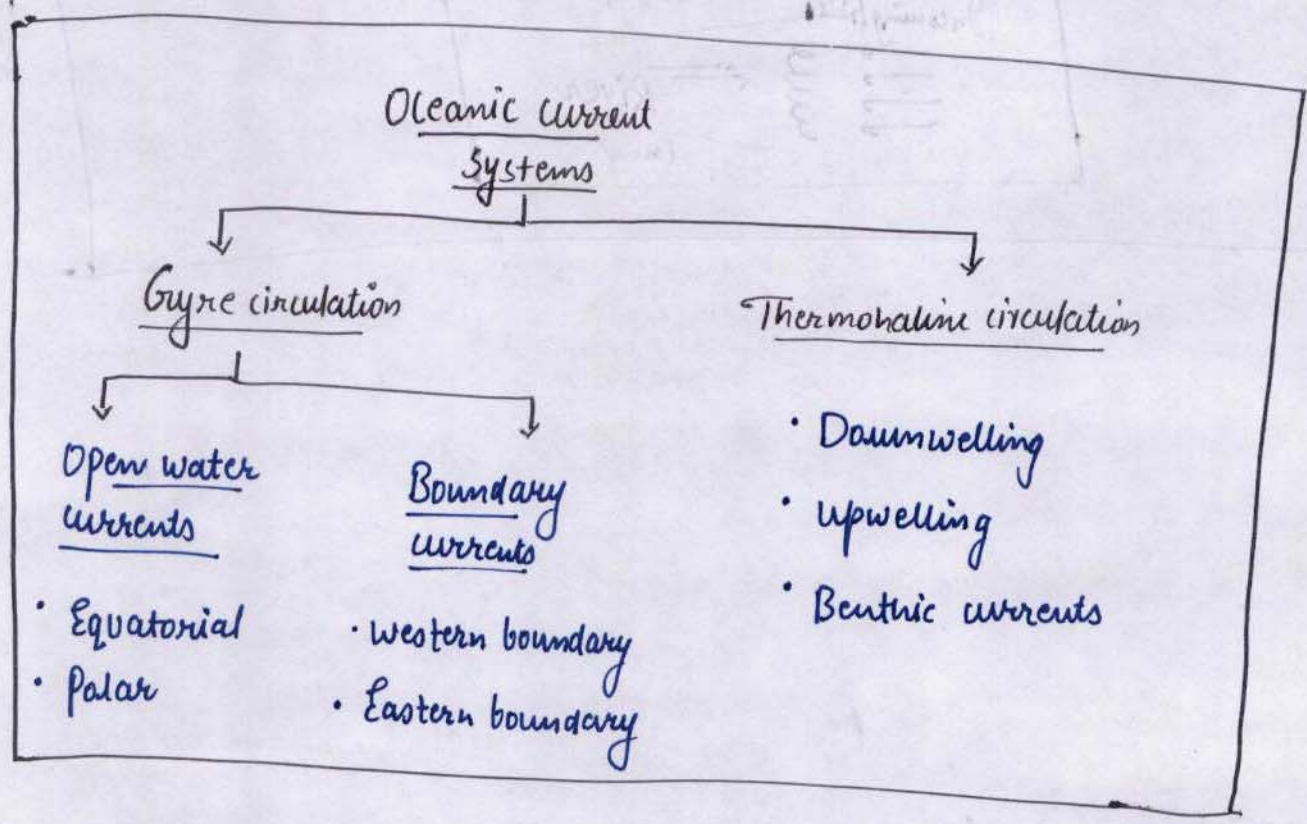 Oceanic current
systems
Gyre circulation
Thermohaline circulation
Open water
currents
• Equatorial
• Polar
Boundary
currents
• western boundary
• Eastern boundary
• Downwelling
• upwelling
• Benthic currents